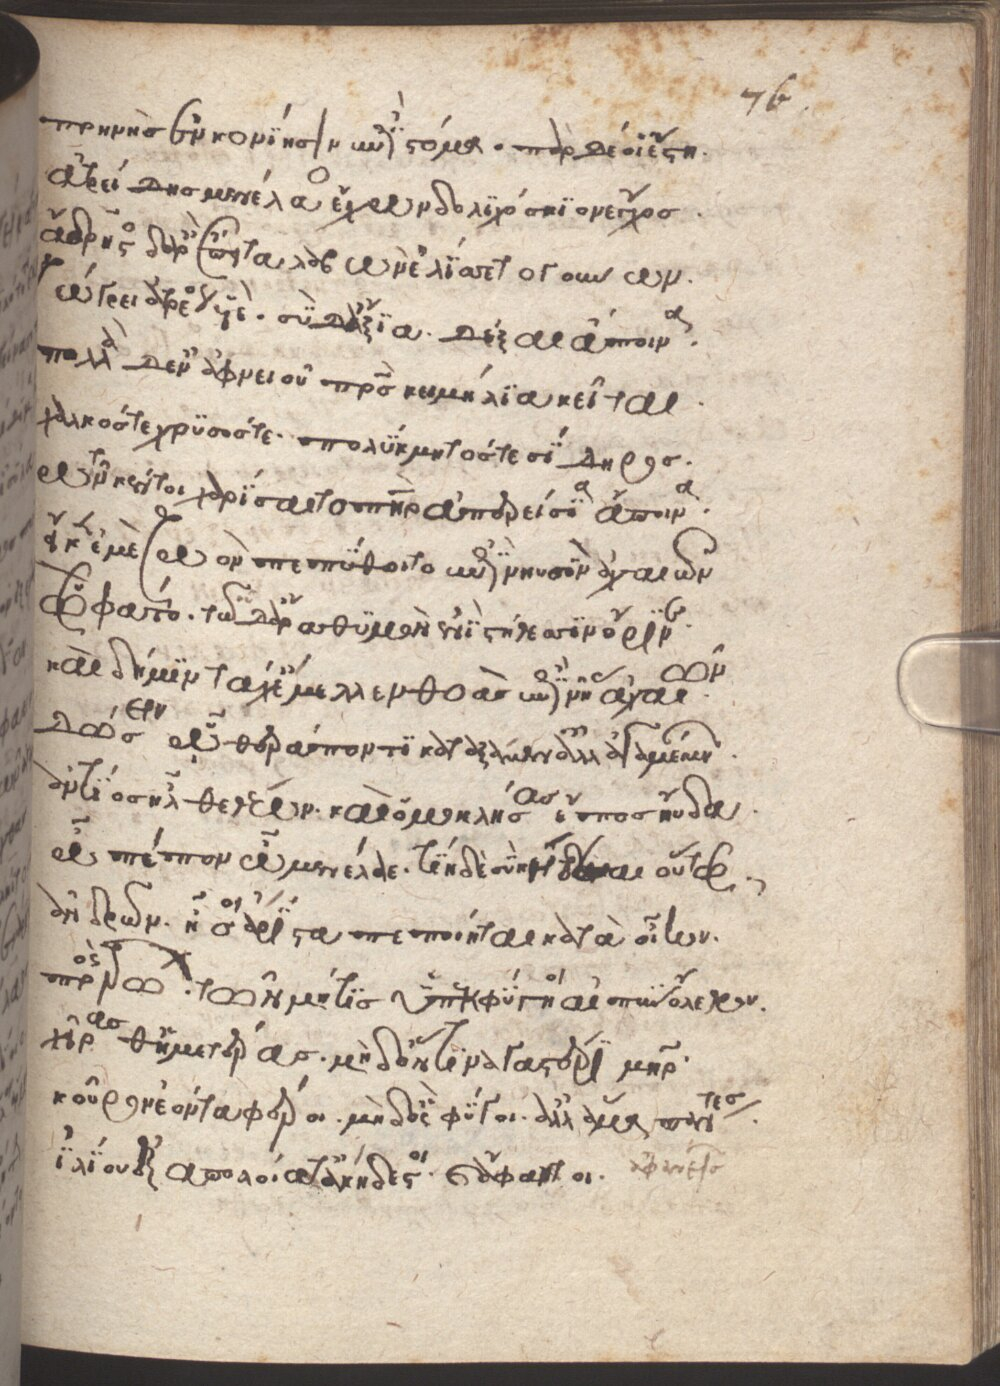 76.
πρηνὴς ἐν κονίῃσιν ἐπὶ στόμα. πὰρ δέ οἱ ἔστη.
ἀτρείδης μενέλαος ἔχων δολιχόσκιον ἔγχος.
ἄδρηστος δ' ἄρ' ἔπειτα λαβὼν ἐλίσσετο γούνων.
ζώγρει ἀτρέος υἱέ. σὺ δ' ἄξια δέξαι ἄποινα.
πολλὰ δ' ἐν ἀφνειοῦ πατρὸς κειμήλια κεῖται.
χαλκός τε χρυσός τε. πολύκμητός τε σίδηρος.
τῶν κέν τοι χαρίσαιτο πατὴρ ἀπερείσι' ἄποινα.
εἴ κεν ἐμὲ ζωὸν πεπύθοιτ' ἐπὶ νηυσὶν ἀχαιῶν
ὣς φάτο. τῷ δ' ἄρα θυμὸν ἐνὶ στήθεσσιν ὄρινε.
καὶ δή μιν τάχ' ἔμελλε θοὰς ἐπὶ νῆας ἀχαιῶν
δώσειν ᾧ θεράποντι καταξέμεν ἀλλ' ἀγαμέμνων.
ἀντίος ἦλθε θέων. καὶ ὁμοκλήσας ἔπος ηὔδα.
ὦ πέπον ὦ μενέλαε. τίη δὲ σὺ κήδεαι οὕτως.
ἀνδρῶν. ἦ σοὶ ἄριστα πεποίηται κατὰ οἶκον.
πρὸς τρώων. τῶν μήτις ὑπεκφύγοι αἰπὺν ὄλεθρον.
χεῖρας θ' ἡμετέρας. μηδ' ὅντινα γαστέρι μήτηρ
κοῦρον ἐόντα φέροι. μηδ' ὃς φύγοι. ἀλλ' ἅμα πάντες.
ἰλίου ἐξαπολοίατ' ἀκήδεστοι καὶ ἄφαντοι.